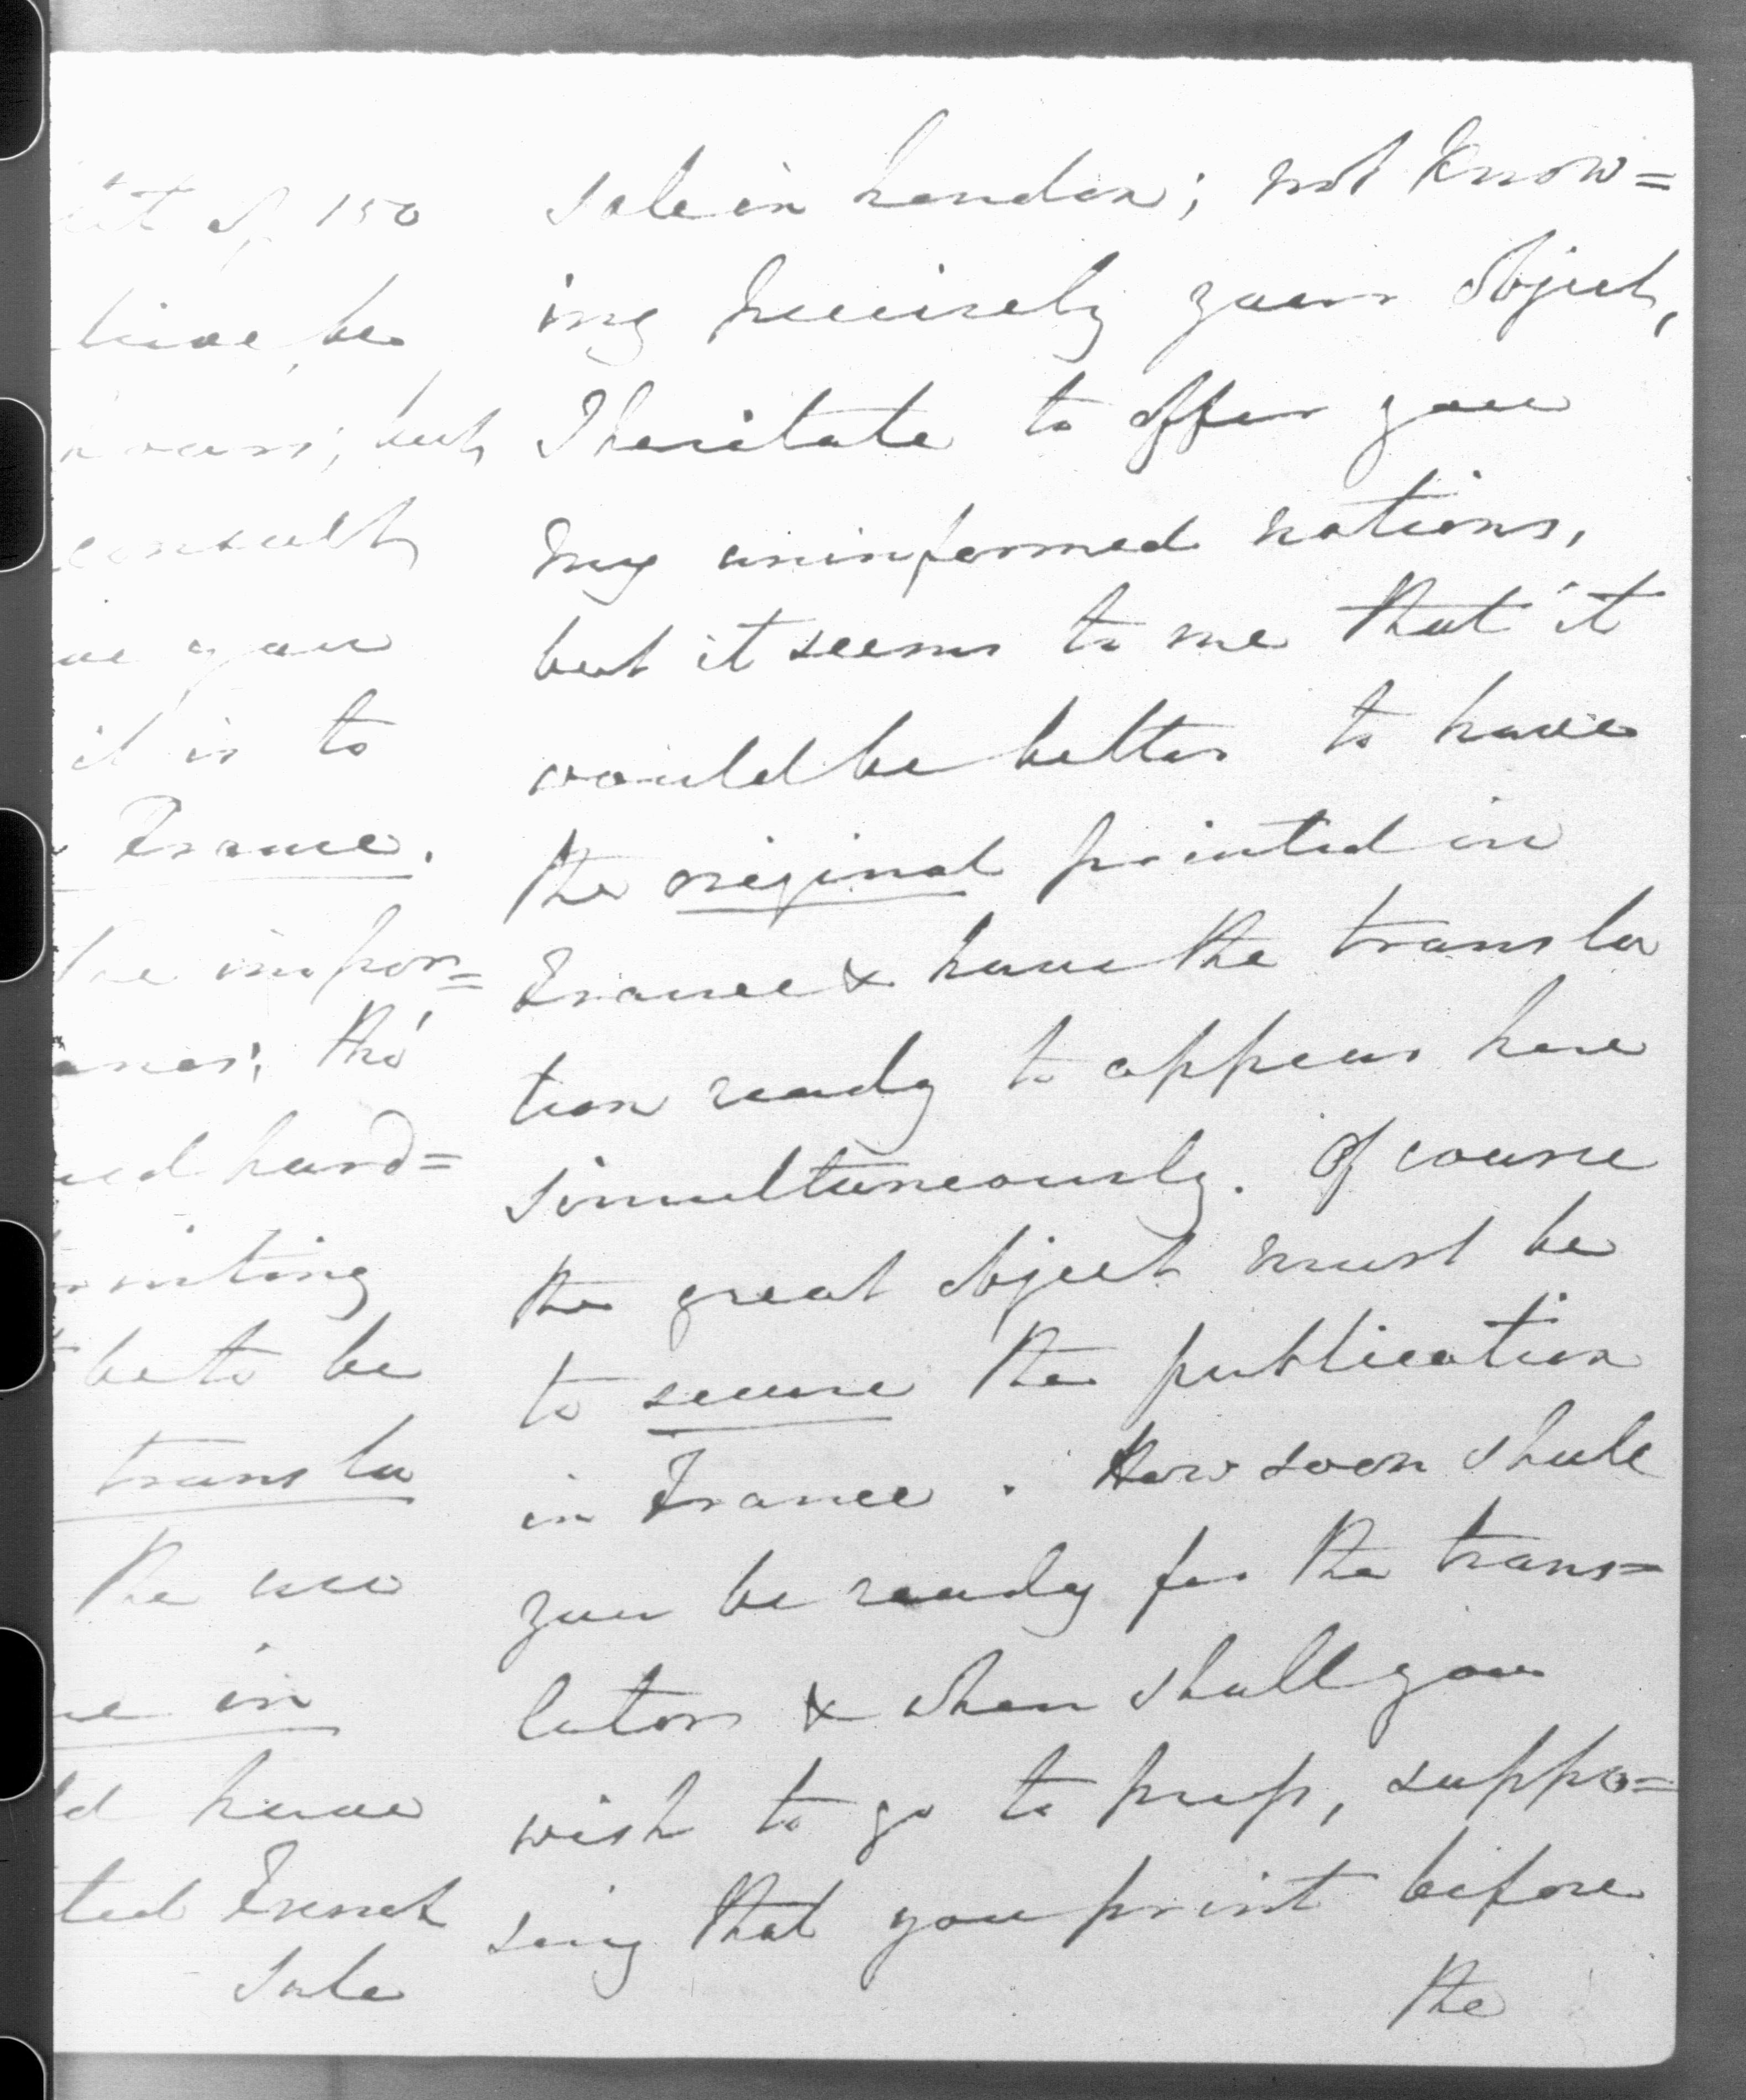 150
be
but
consult
you
it is to
France.
impor=
tho'
hard=
be to be
transla
the use
in
have
French
Sale
sale in London; not know=
ing precisely your object,
I hesitate to offer you
my uninformed notions,
but it seems to me that it
would be better to have
the original printed in
France & have the transla
tion ready to appear here
simultaneously. Of course
the great object must be
to secure the publication
in France. How soon shall
you be ready for the trans=
lators & when shall you
wish to go to press, suppo=
sing that you print before
the